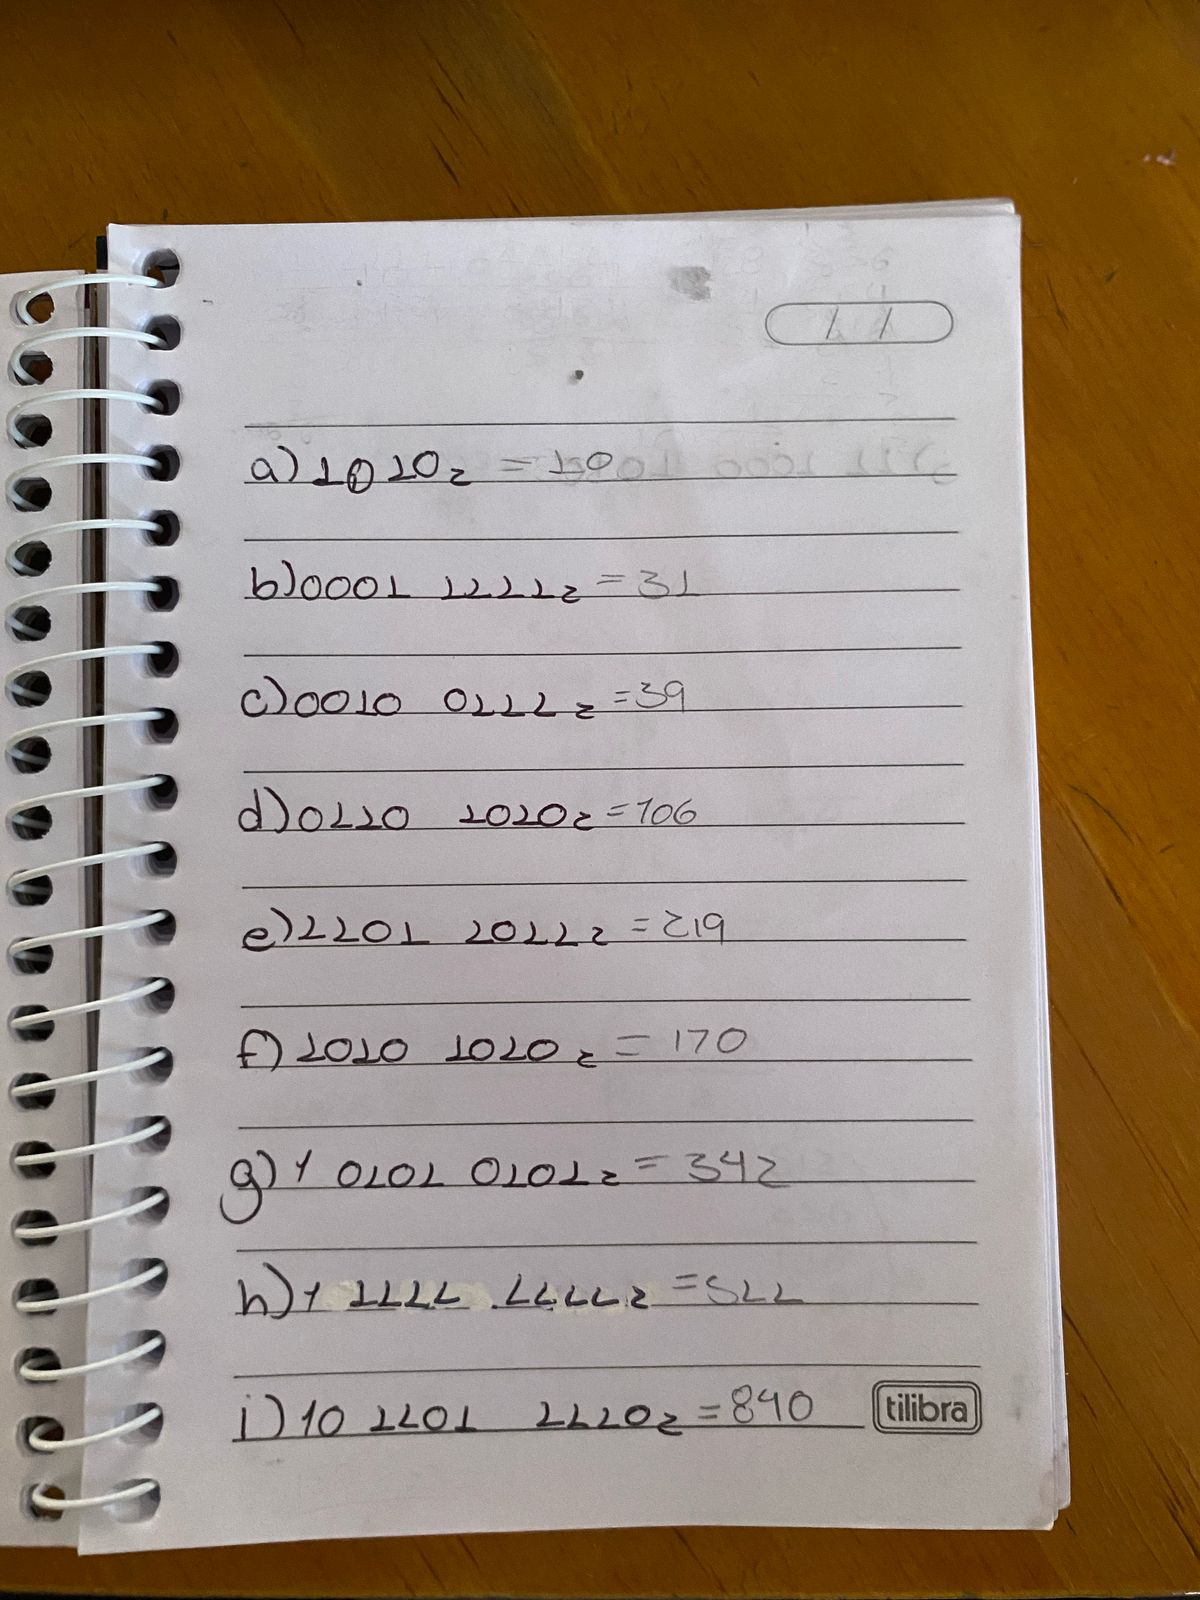 / /
a) 1010₂ = 10
b) 0001 1111₂ = 31
c) 0010 0111₂ = 39
d) 0110 1010₂ = 106
e) 1101 1011₂ = 219
f) 1010 1010₂ = 170
g) 1 0101 0101₂ = 342
h) 1 1111 1111₂ = 511
i) 10 1101 1110₂ = 840
tilibra